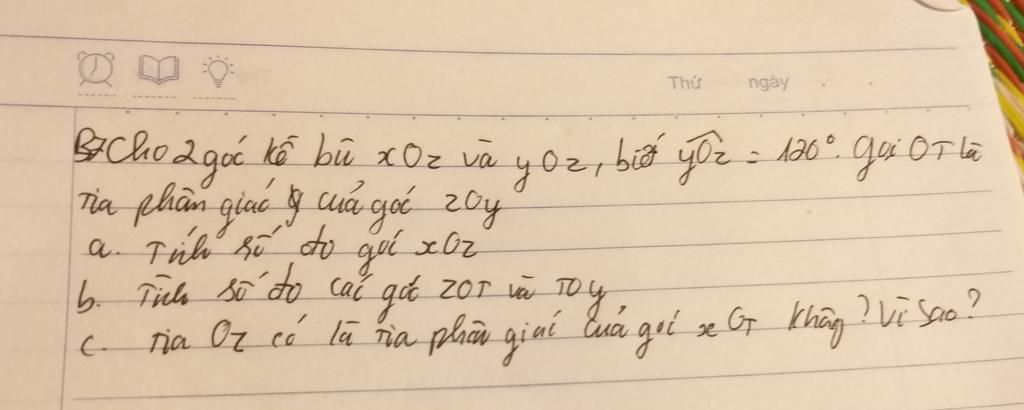 Thứ ngày
B7 Cho 2 góc kề bù xOz và yOz, biết yOz = 120°. Gọi OT là
tia phân giác của góc zOy
a. Tính số đo góc xOz
b. Tính số đo các góc zOT và TOy
c. Tia Oz có là tia phân giác của góc xOT không? Vì sao?